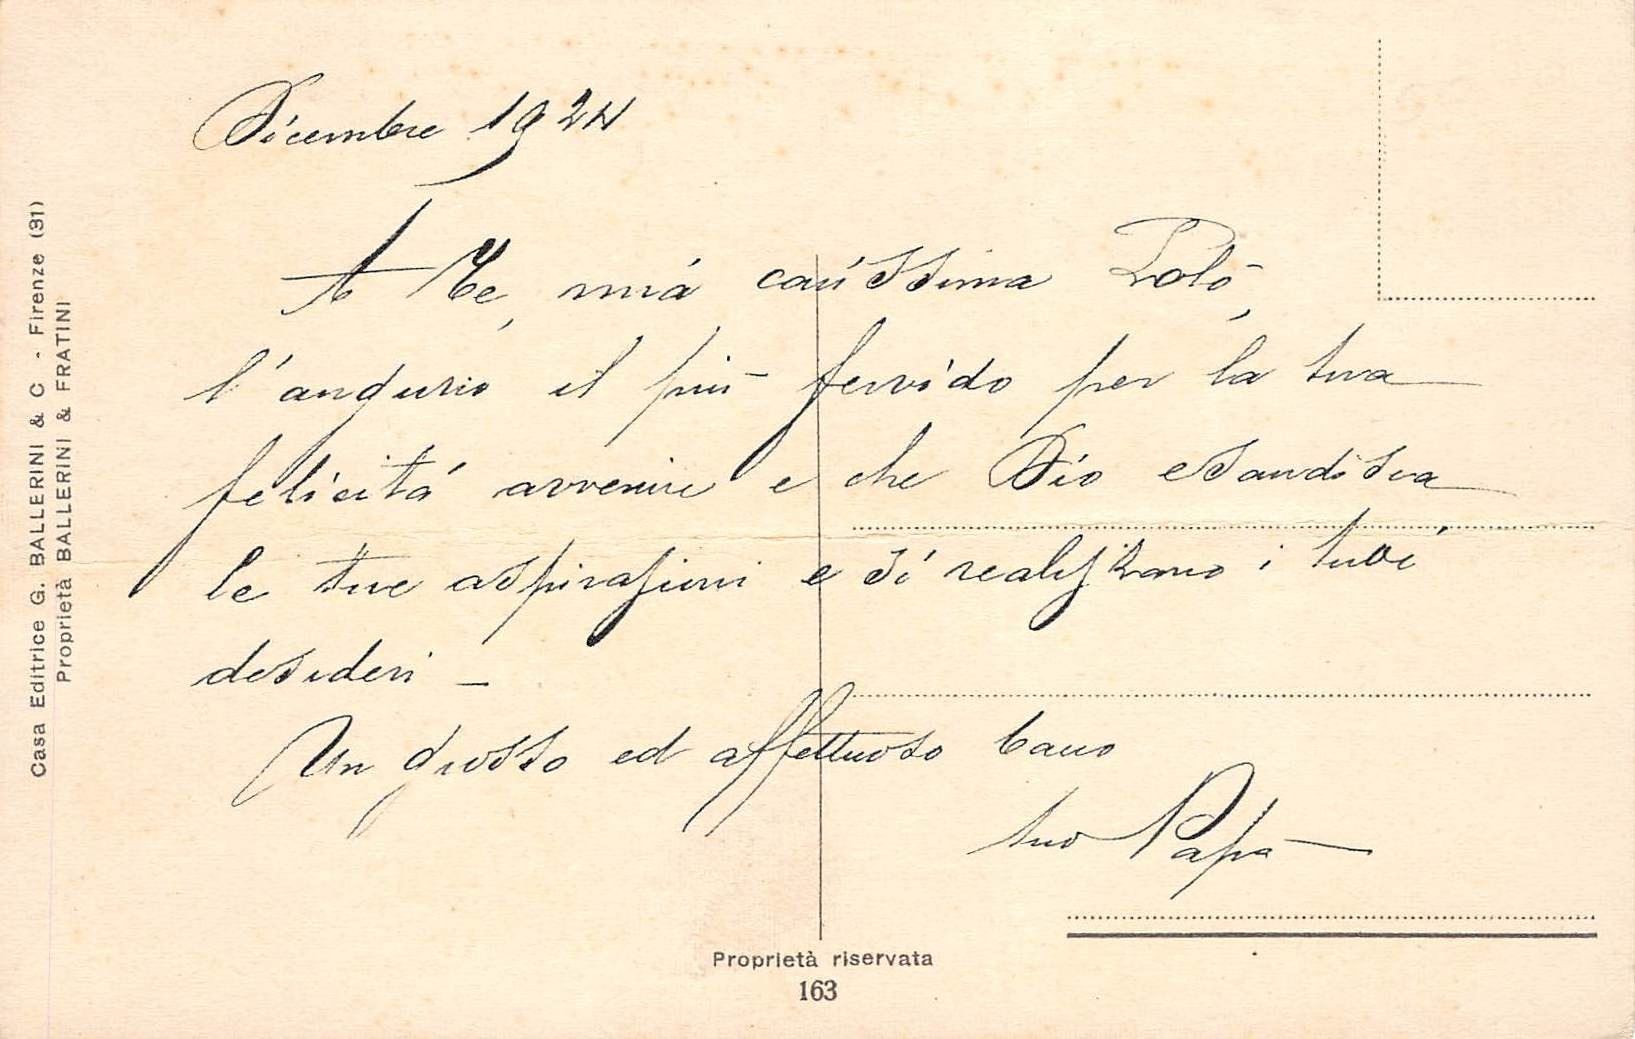 Dicembre 1924
A Te, mia carissima Lolò,
l'augurio il più fervido per la tua
felicità avvenire e che Dio esaudisca
le tue aspirazioni e si realizzano i tuoi
desideri –
Un grosso ed affettuoso bacio
tuo Papa
Casa Editrice G. BALLERINI & C - Firenze (31)
Proprietà BALLERINI & FRATINI
Proprietà riservata
163